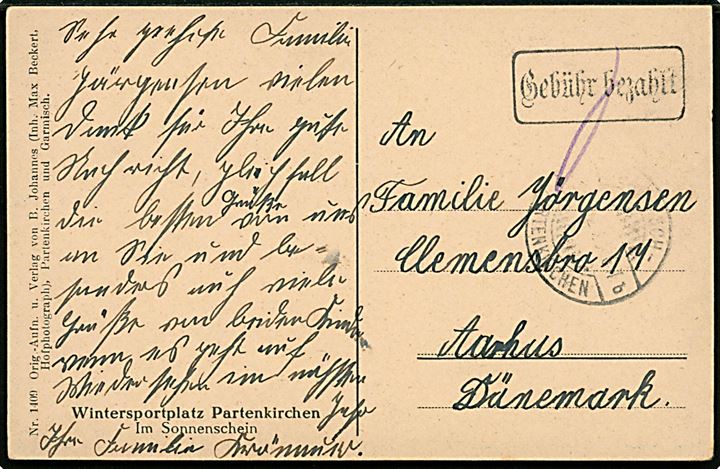 Sehr geehrte Familie
Jörgensen vielen
Dank für Ihre gute
Nachricht, gleichfall
die besten Grüße von uns
an Sie und be-
sonders auch viele
Grüße von beiden Kinder
wenn es geht auf
Wiedersehen im nächsten
Jahr
Ihre Familie
Nr. 1409 Orig.-Aufn. u. Verlag von B. Johannes (Inh. Max Beckert.
Hofphotograph), Partenkirchen und Garmisch.
Wintersportplatz Partenkirchen
Im Sonnenschein
Gebühr bezahlt
An
Familie Jörgensen
Clemensbro 17
Aarhus
Dänemark.